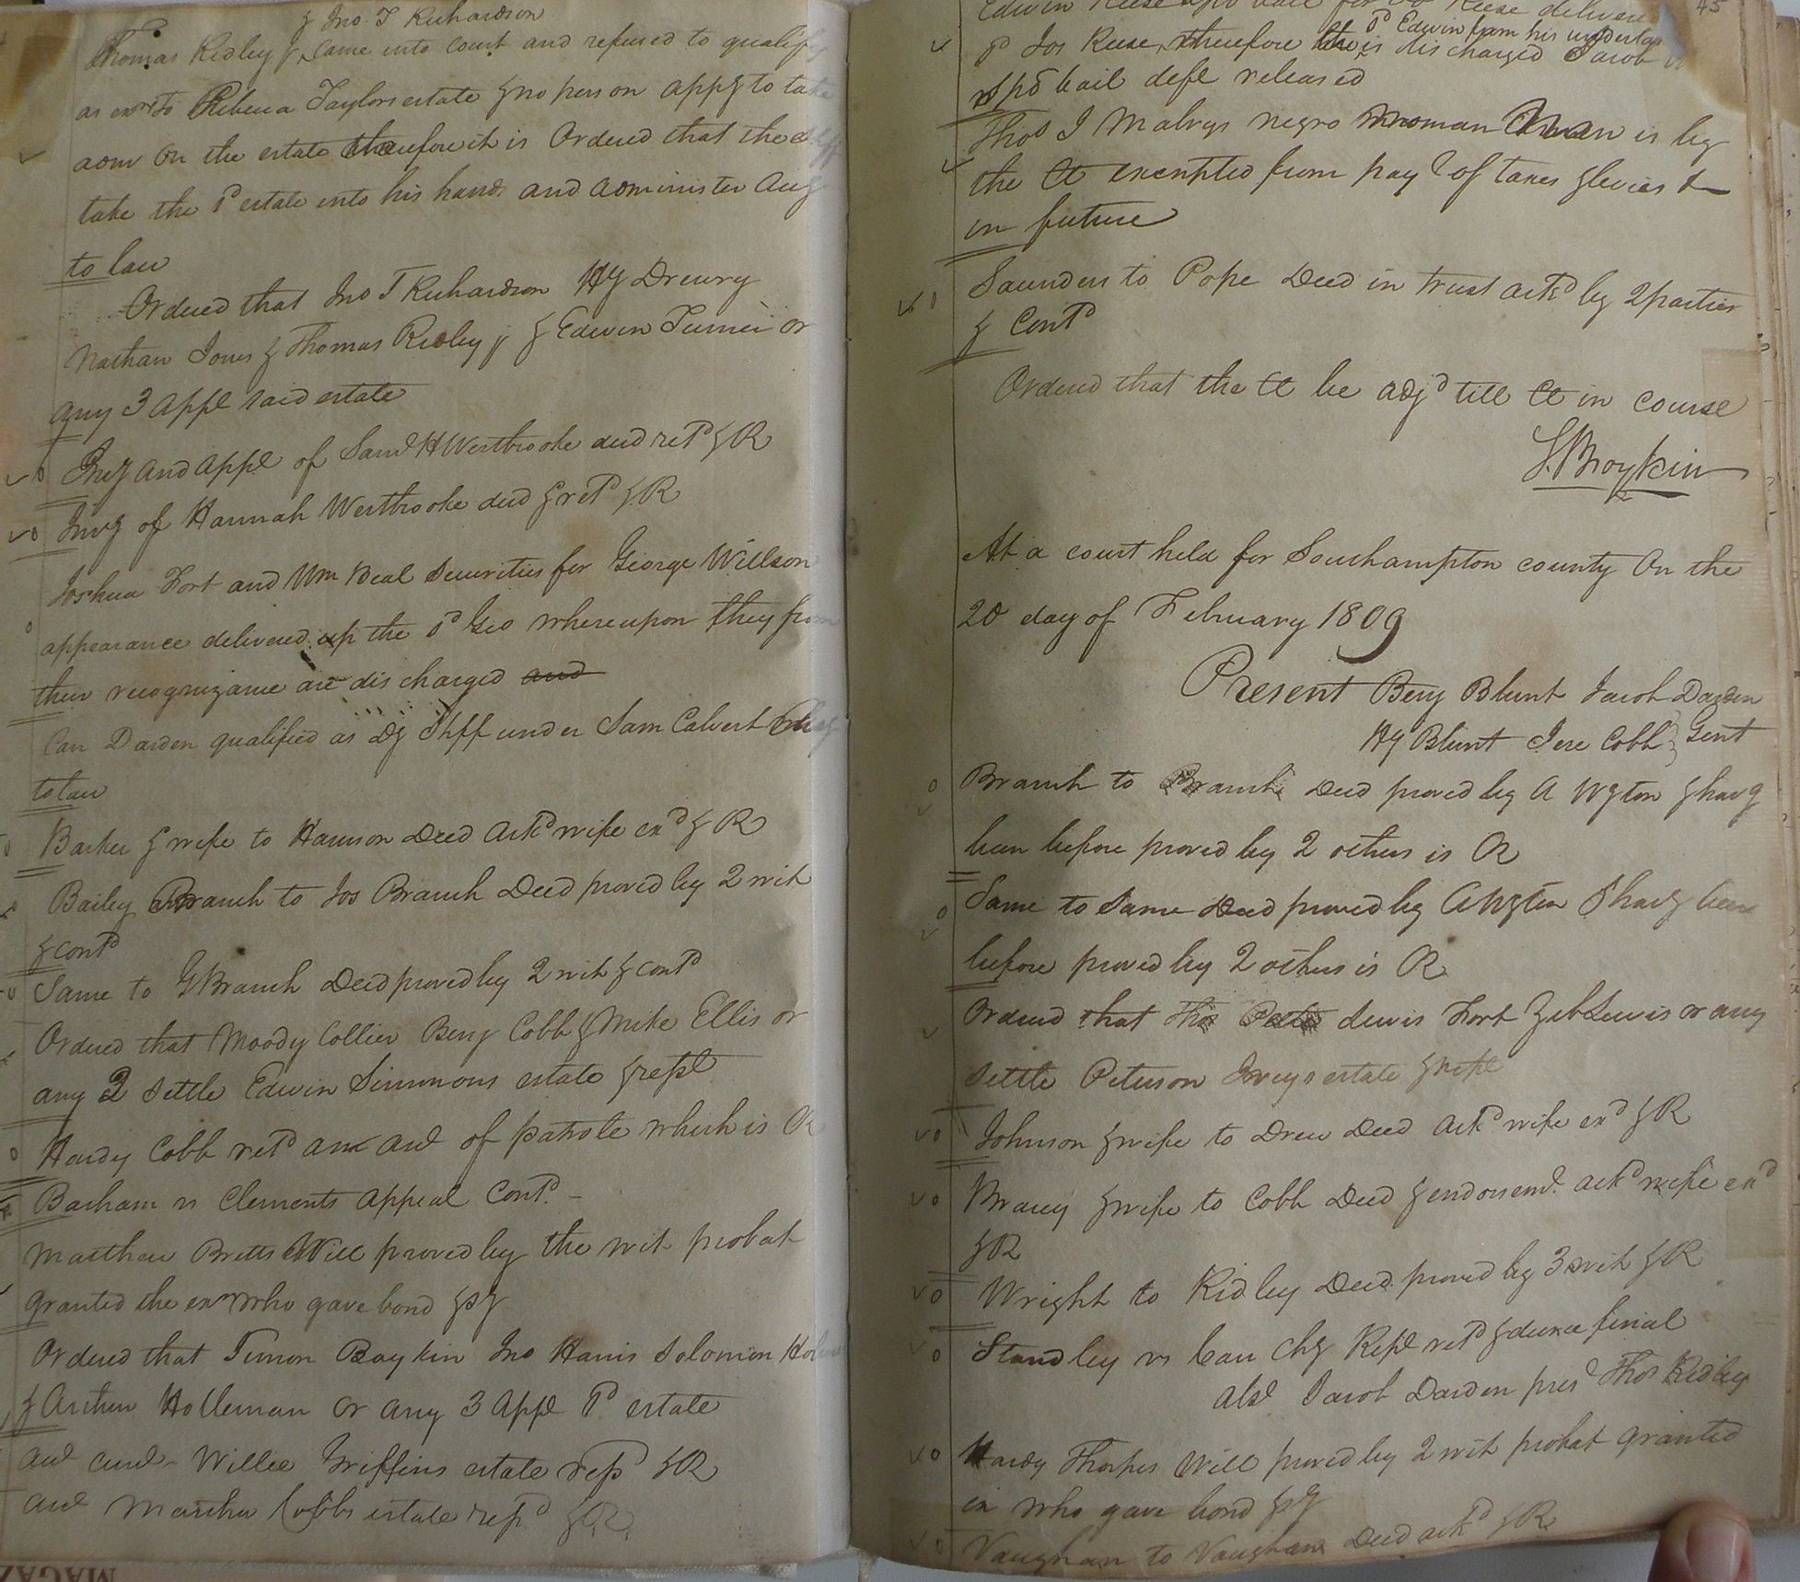 & Jno. T Richardson
Thomas Ridley & came into court and refused to qualify
as exors to Rebecca Taylors estate & no person appg to take
adm on the estate therefore it is Ordered that the
take the sd estate into his hands and administer Aug
to law
Ordered that Jno T Richardson Hy Drewry
Nathan Jones & Thomas Ridley jr & Edwin Turner or
any 3 Appe said estate
Invy and Appe of Saml H Westbrooke decd retd & R
Invy of Hannah Westbrooke decd & retd & R
Joshua Fort and Wm Beal Securities for George Willson
appearance delivered up the sd Geo whereupon they from
their recognizance are discharged and
Carr Darden qualified as dy Shff under Sam Calvert
to law
Barker & wife to Harrison Deed ackd wife exd & R
Bailey Branch to Jos Branch Deed proved by 2 wit
& contd
Same to G Branch Deed proved by 2 wit & contd
Ordered that Moody Collier Benj Cobb & Mike Ellis or
any 2 Settle Edwin Simmons estate & repe
Hardy Cobb retd an acct of patrole which is R
Barham vs Clements Appeal Contd.
Matthew Britts Will proved by the wit probat
granted the exr who gave bond &c
Ordered that Simon Boykin Jno Harris Solomon
& Arthur Holleman or any 3 Appe sd estate
Acct Willie Griffins estate & R
Acct Martha Cobbs estate & R.
45
Edwin Reese
sd Jos Reese, therefore he is discharged sd Edwin from his Jacob
spd bail deft released
Thos J Mabrys negro woman is by
the Ct exempted from payt of taxes & levies
in future
Saunders to Pope Deed in trust ackd by 2 parties
& Contd
Ordered that the Ct be adjd till Ct in course
S. Boykin
At a court held for Southampton county On the
20 day of February 1809
Present Benj Blunt Jacob Darden
Hy Blunt Jere Cobb Gent
Branch to Branch Deed proved by A Wgton & havg
been before proved by 2 others is R
Same to Same Deed proved by A Wgton & havg been
before proved by 2 others is R
Ordered that Lewis Fort Zeb Lewis or any
Settle Peterson Iveys estate & repe
Johnson & wife to Drew Deed ackd wife exd & R
Bracy & wife to Cobb Deed & endorsemt ackd wife exd
& R
Wright to Ridley Deed proved by 3 wit & R
Standley vs Carr Chy Repe retd & decree final
abst Jacob Darden prest Thos Ridley
Hardy Tharpes Will proved by 2 wit probat granted
ex who gave bond &c
Vaughan to Vaughan Deed ackd & R
MAGAZ